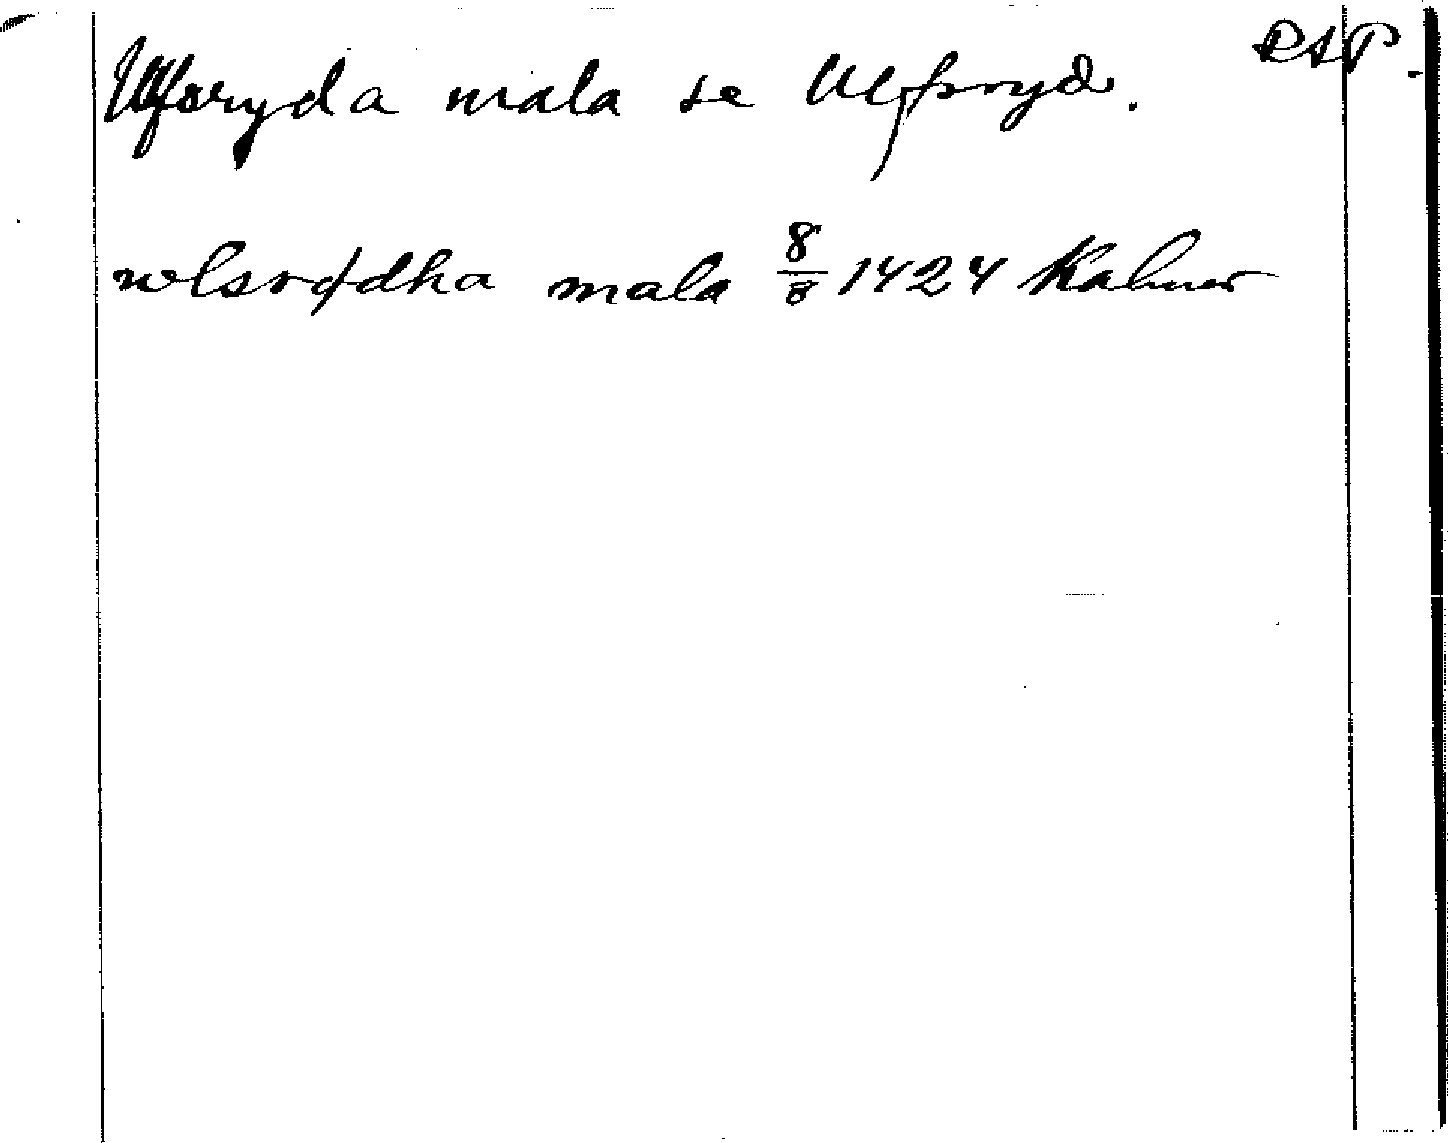 RAP.
Ulfsryda mala se Ulfsryd.
wlsrødha mala 8/8 1424 Kalmar